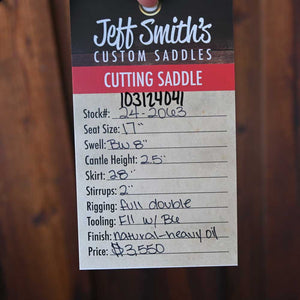 Jeff Smith's
CUSTOM SADDLES
CUTTING SADDLE
103124041
Stock#: 24-2063
Seat Size: 17"
Swell: BW 8"
Cantle Height: 2.5"
Skirt: 28"
Stirrups: 2"
Rigging: full double
Tooling: Ell w/ BW
Finish: natural-heavy oil
Price: $3,550